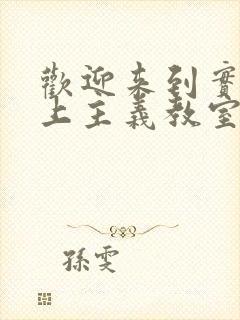 歡迎來到實
上主義教室
孫雯